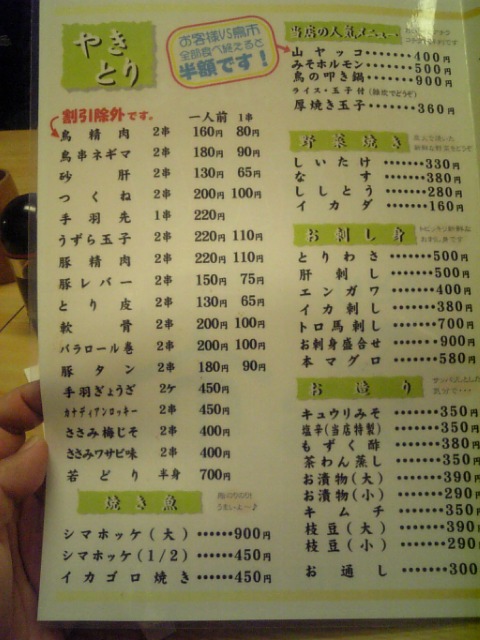 やきとり
お客様VS鳥市
全部食べ終えると
半額です!
割引除外です。
一人前 1串
鳥精肉 2串 160円 80円
鳥串ネギマ 2串 180円 90円
砂肝 2串 130円 65円
つくね 2串 200円 100円
手羽先 1串 220円
うずら玉子 2串 220円 110円
豚精肉 2串 220円 110円
豚レバー 2串 150円 75円
とり皮 2串 130円 65円
軟骨 2串 200円 100円
バラロール巻 2串 200円 100円
豚タン 2串 180円 90円
手羽ぎょうざ 2ケ 450円
カナディアンロッキー 2串 450円
ささみ梅じそ 2串 400円
ささみワサビ味 2串 400円
若どり 半身 700円
焼き魚
シマホッケ(大)……900円
シマホッケ(1/2)……450円
イカゴロ焼き……450円
当店の人気メニュー
山ヤッコ……400円
みそホルモン……500円
鳥の叩き鍋……900円
ライス・玉子付(雑炊でどうぞ)
厚焼き玉子……360円
野菜焼き
しいたけ……330円
なす……380円
ししとう……280円
イカダ……160円
お刺し身
とりわさ……500円
肝刺し……500円
エンガワ……400円
イカ刺し……380円
トロ馬刺し……700円
お刺身盛合せ……900円
本マグロ……580円
お造り
キュウリみそ……350円
塩辛(当店特製)……350円
もずく酢……380円
茶わん蒸し……350円
お漬物(大)……390円
お漬物(小)……290円
キムチ……350円
枝豆(大)……390円
枝豆(小)……290円
お通し……300